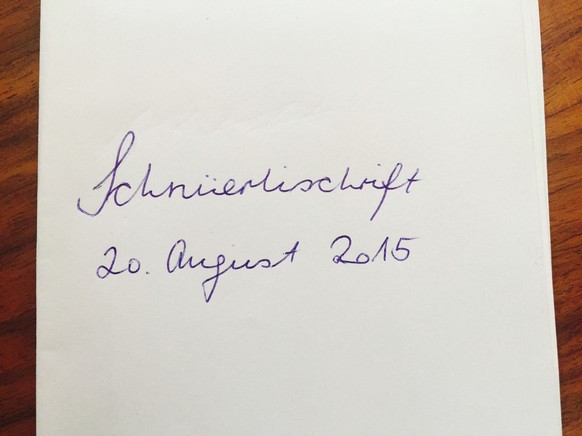 Schnüerlischrift
20. August 2015